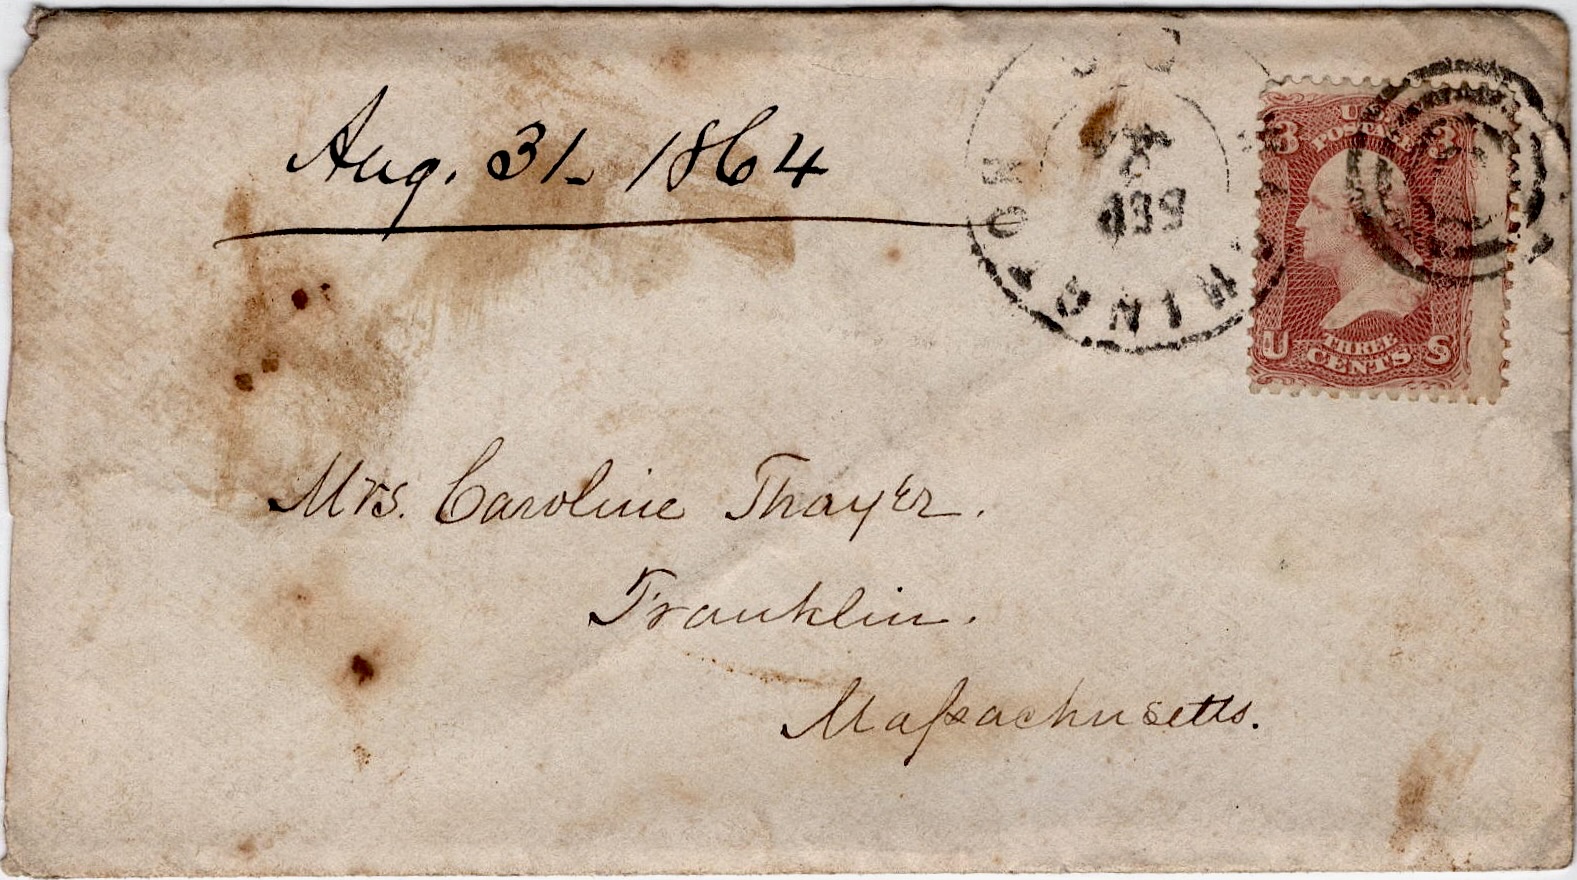 Aug. 31_ 1864
SEP
3 U.S. 3
POSTAGE
U THREE S
CENTS
Mrs. Caroline Thayer.
Franklin.
Maſsachusetts.